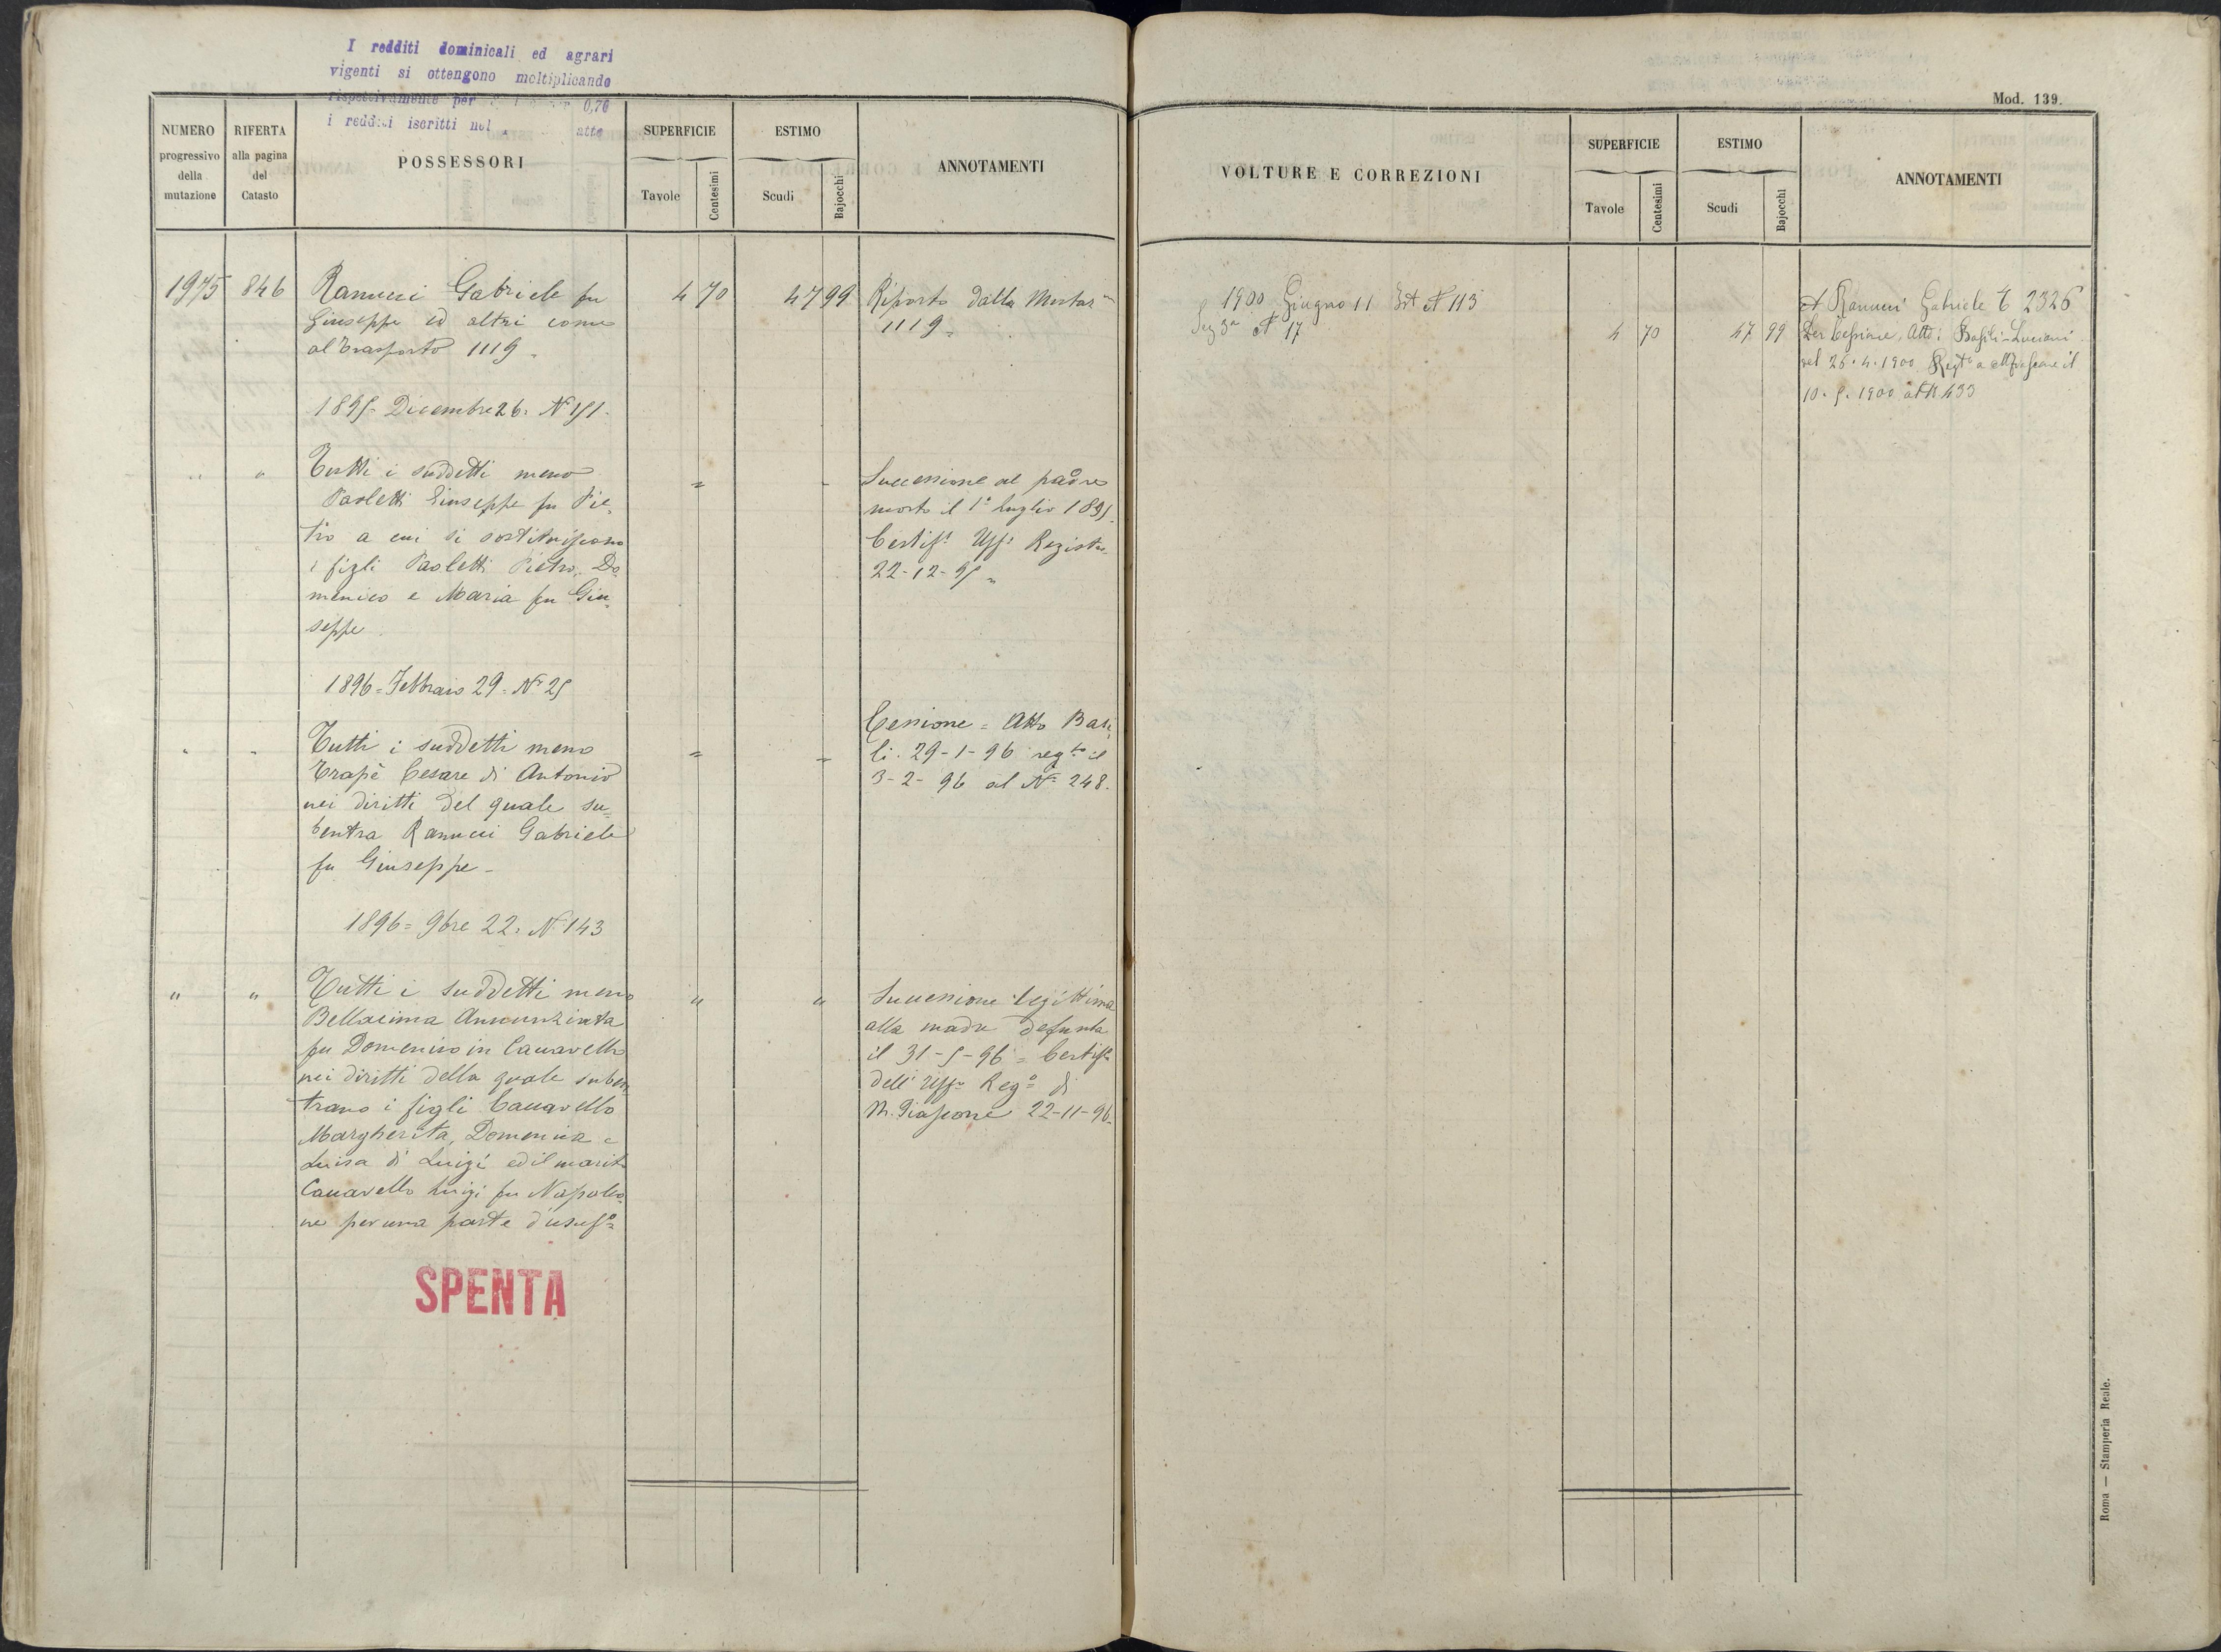 I redditi dominicali ed agrari
vigenti si ottengono moltiplicando
rispettivamente per 0,70
i redditi iscritti nel atto
Mod. 139.
NUMERO
progressivo
della
mutazione
RIFERTA
alla pagina
del
Catasto
POSSESSORI
SUPERFICIE
Tavole
Centesimi
ESTIMO
Scudi
Bajocchi
ANNOTAMENTI
1975 846 Ranucci Gabriele fu 4 70 47 99 Riporto dalla
Giuseppe ed altri come 1119
al trasporto 1119
1895 Dicembre 26. N 151.
" " Tutti i suddetti meno = - Successione al padre
Paoletti Giuseppe fu Pie= morto il 1° luglio 1895
tro a cui si sostituiscono Certif° Uff° Registro
i figli Paoletti Pietro, Do= 22-12-95
menico e Maria fu Giu=
seppe
1896 = Febbraio 29 = N° 25
" " Tutti i suddetti meno = = Cessione = Atto Basi=
Trapè Cesare di Antonio li. 29-1-96 reg.to il
nei diritti del quale su= 3-2-96 al N° 248.
bentra Ranucci Gabriele
fu Giuseppe -
1896 = 9bre 22. N 143
" " Tutti i suddetti meno " " Successione legittima
Bellacima Annunziata alla madre defunta
fu Domenico in Canavello il 31-5-96 = Certif°
nei diritti della quale suben= dell' Uff° Reg° di
trano i figli Canavello M. Fiascone 22-11-96.
Margherita, Domenica e
Luisa di Luigi ed il marito
Canavello Luigi fu Napoleo=
ne per una parte d'usuf°
SPENTA
VOLTURE E CORREZIONI
SUPERFICIE
Tavole
Centesimi
ESTIMO
Scudi
Bajocchi
ANNOTAMENTI
1900 Giugno 11 N 113 A Ranucci Gabriele T 2326
Seg 3a N 17 4 70 47 99 Per Cessione, Atto: Basili-Luciani
del 25.4.1900 Regto a Mfiascone il
10.5.1900 al N 433
Roma — Stamperia Reale.